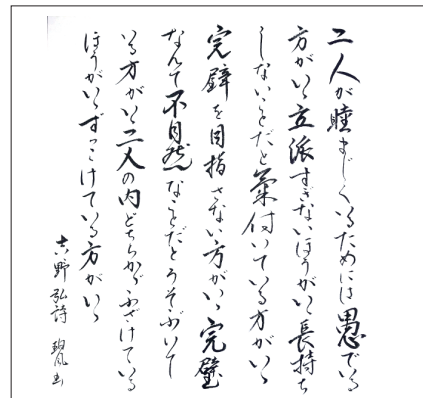 二人が睦まじくいるためには愚でいる
方がいゝ立派すぎないほうがいゝ長持ち
しないことだと氣付いている方がいゝ
完璧を目指さない方がいゝ完璧
なんて不自然なことだとうそぶいて
いる方がいゝ二人の内どちらかがふざけている
ほうがいゝずっこけている方がいゝ
吉野弘詩